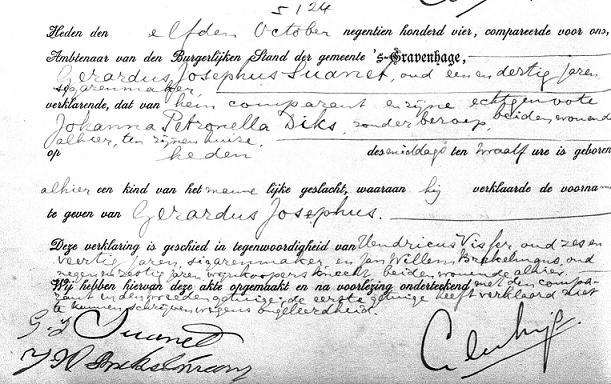 5124
Heden den elfden October negentien honderd vier, compareerde voor ons,
Ambtenaar van den Burgerlijken Stand der gemeente 's-Gravenhage,
Gerardus Josephus Suanet, oud een en dertig jaren
sigarenmaker,
verklarende, dat van hem comparant en zijne echtgenoote
Johanna Petronella Diks, zonder beroep, beiden wonende
alhier, ten zijnen huize,
op heden des middags ten twaalf ure is geboren
alhier een kind van het mannelijke geslacht, waaraan hij verklaarde de voornam
te geven van Gerardus Josephus.
Deze verklaring is geschied in tegenwoordigheid van Hendricus Visser, oud zes en
veertig jaren, sigarenmaker en Jan Willem Brekelmans, oud
negen en zestig jaren, wijnkoopersknecht, beiden wonende alhier.
Wij hebben hiervan deze akte opgemaakt en na voorlezing onderteekend met den compa-
rant en den tweeden getuige; de eerste getuige heeft verklaard niet
te kunnen schrijven wegens ongeleerdheid.
G. J. Suanet
J W Brekelmans